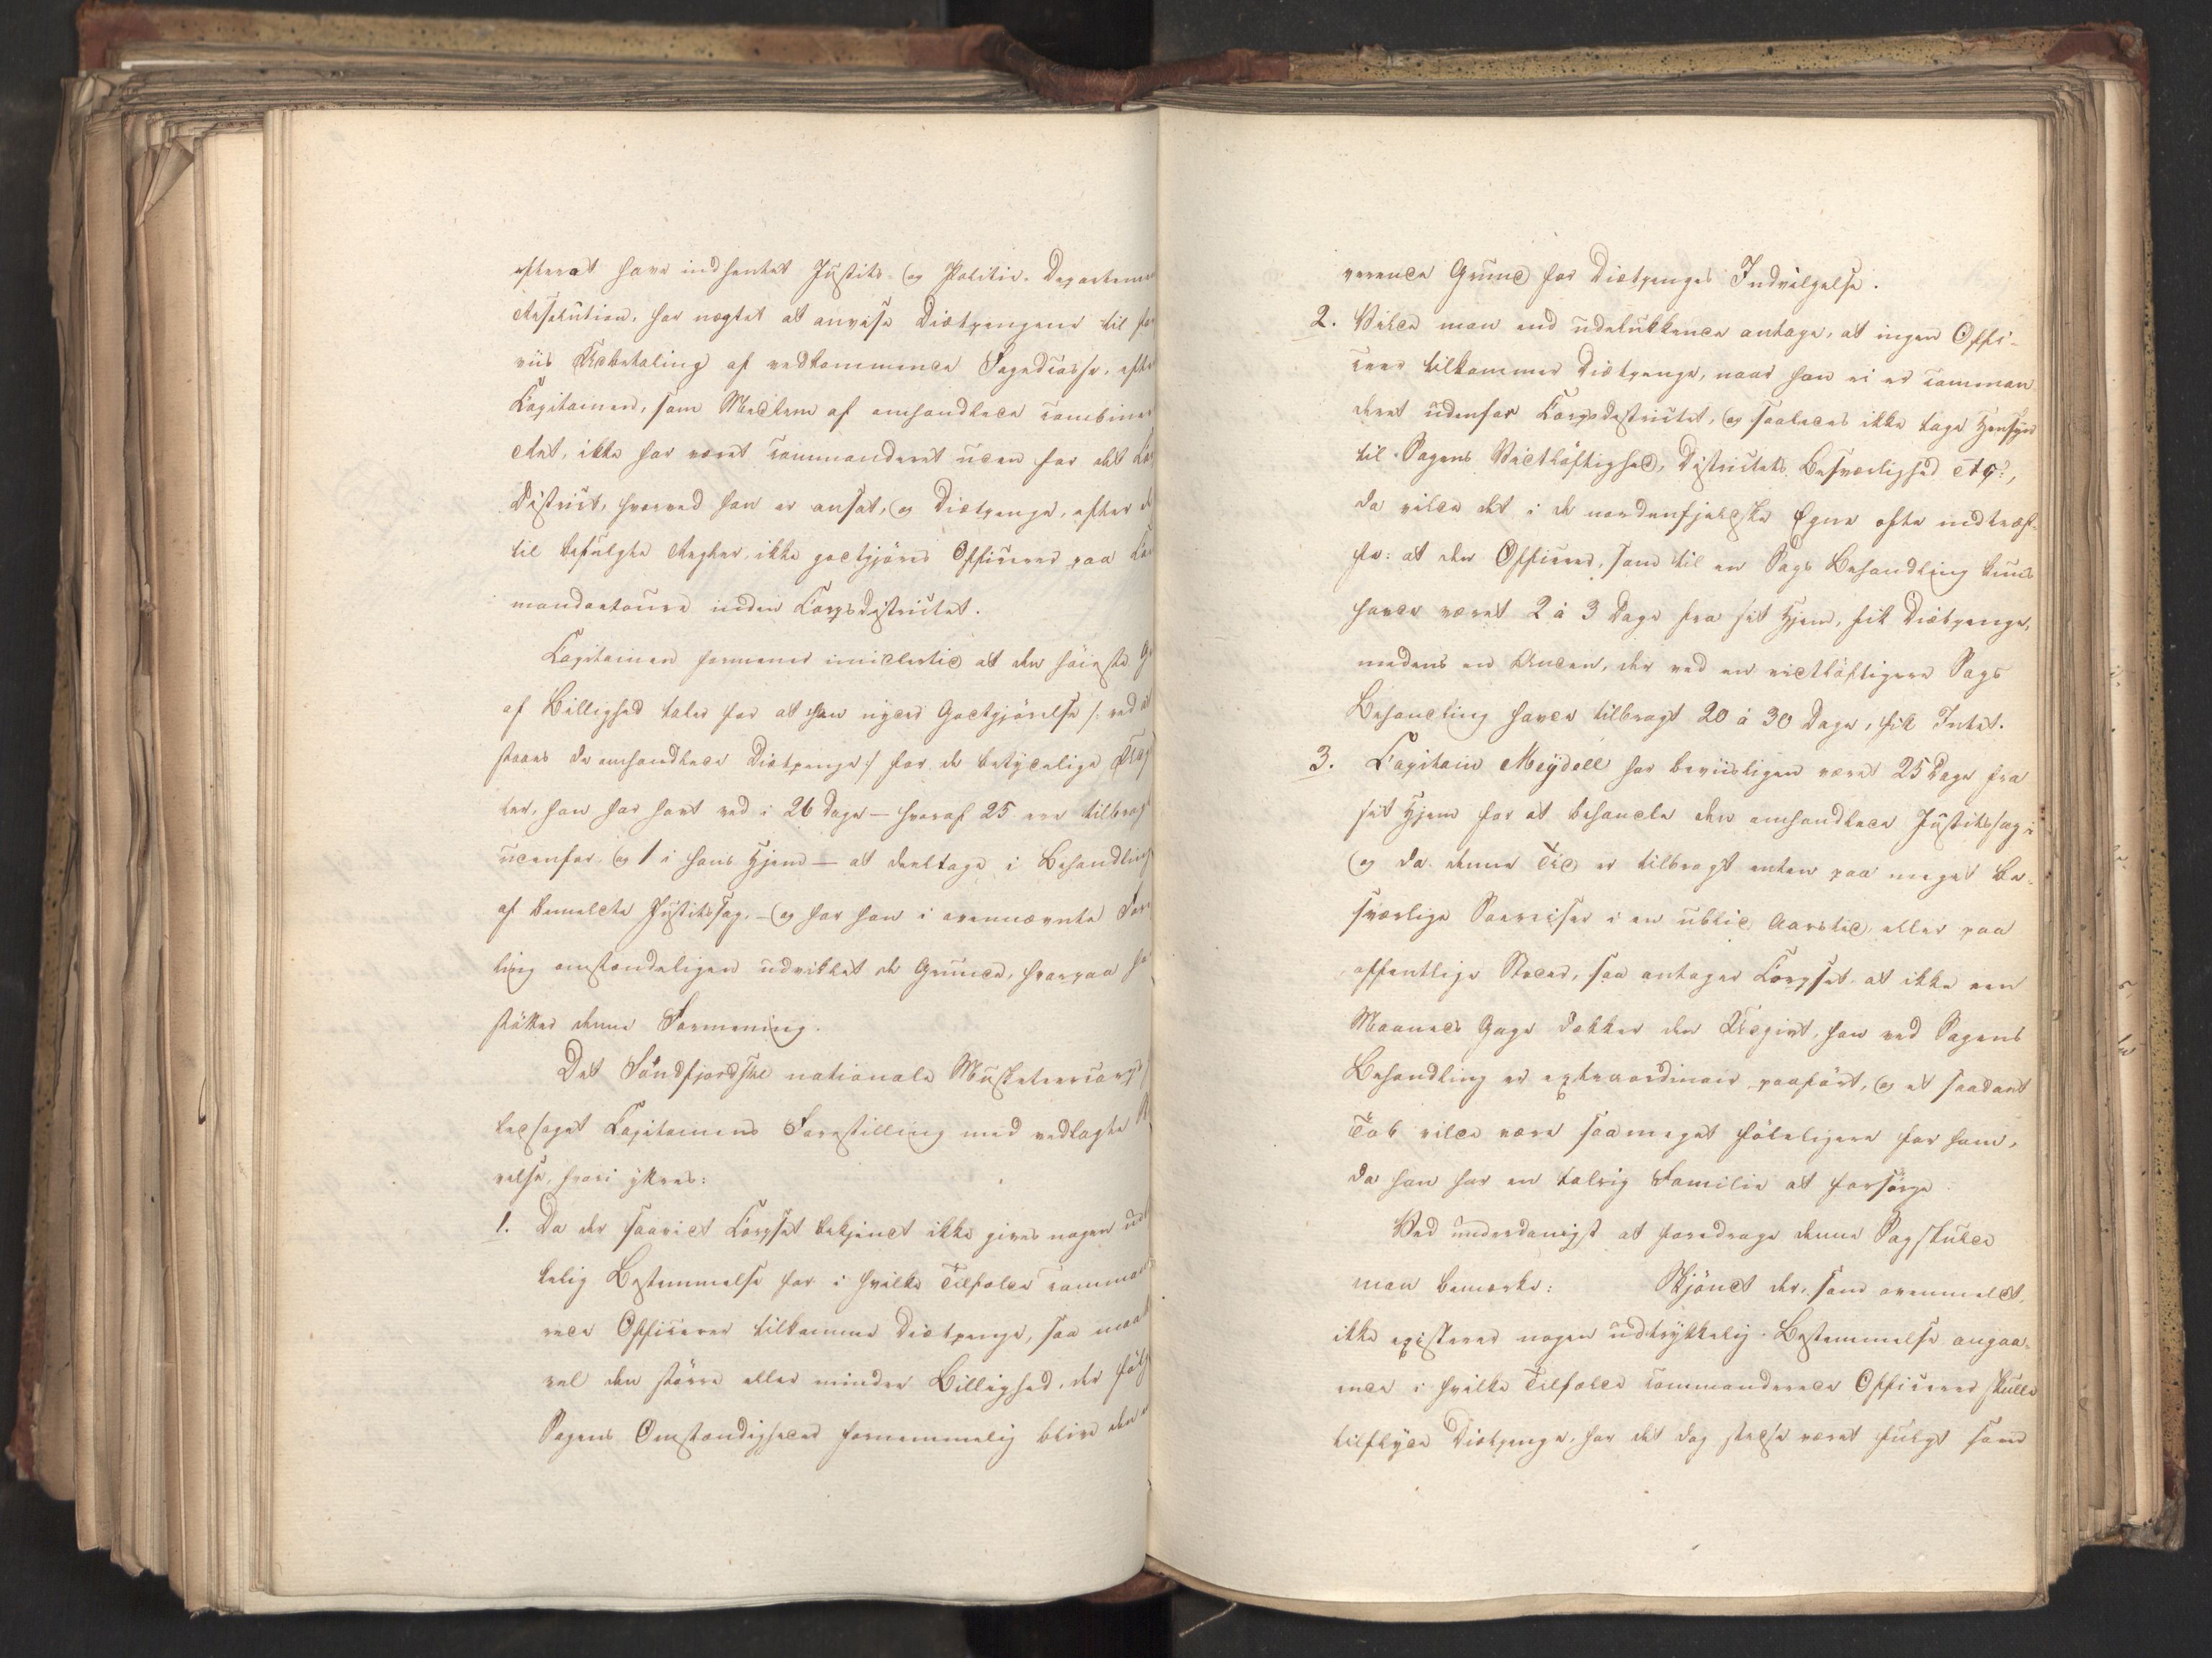 efterat have indhentet Justits- og Politie-Departeme
Resolution, har nægtet at anvise Diætpengene til for
viis Udbetaling af vedkommende Fogedcasse, efter
Capitainen, som Medlem af omhandlede combine
Ret, ikke har været commanderet uden for det Co
District, hvorved han er ansat, og Diætpenge, efter d
til befulgte Regler, ikke godtgjöres Officerer paa Co
mandoetoure inden Corpsdistrictet.
Capitainen formener imidlertid at den höieste G
af Billighed taler for at han nyder Godtgjörelse /: ved at
staaes de omhandlede Diætpenge :/ for de betydelige Udg
ter, han har havt ved i 26 Dage — hvoraf 25 ere tilbragt
udenfor og 1 i hans Hjem — at deeltage i Behandling
af bemeldte Justitssag, — og har han i ovennævnte Fore
ling omstændeligen udviklet de Grunde, hvorpaa ha
stötter denne Formening.
Det Söndfjordske nationale Musketeercorps
ledsaget Capitainens Forestilling med vedlagte
velse, hvori yttres:
1. Da der saavidt Corpset bekjendt ikke gives nogen ud
kelig Bestemmelse for i hvilke Tilfælde comman
rede Officerer tilkomme Diætpenge, saa maat
vel den större eller mindre Billighed, der fölg
Sagens Omstændigheder fornemmelig blive den
værende Grund for Diætpenges Indvilgelse.
2. Vilde man end udelukkende antage, at ingen Offi-
ceer tilkommer Diætpenge, naar han ei er comman
deret udenfor Corpsdistrictet, og saaledes ikke tage Hensyn
til Sagens Vidtlöftighed, Districtets Besværlighed etc.,
da vilde det i de nordenfjeldske Egne ofte indtræf-
fe: at den Officeer, som til en Sags Behandling kuns
havde været 2 à 3 Dage fra sit Hjem, fik Diætpenge,
medens en Anden, der ved en vidtlöftigere Sags
Behandling havde tilbragt 20 à 30 Dage, fik Intet.
3. Capitain Meydell har beviisligen været 25 Dage fra
sit Hjem for at behandle den omhandlede Justitssag;
og da denne Tid er tilbragt enten paa meget be-
sværlige Söereiser i en ublid Aarstid, eller paa
offentlige Steder, saa antager Corpset, at ikke een
Maaneds Gage dækker den Udgivt, han ved Sagens
Behandling er extraordinair paafört, og et saadant
Tab vilde være saameget föleligere for ham,
da han har en talrig Familie at forsörge.
Ved underdanigst at foredrage denne Sag skulde
man bemærke: Skjöndt der, som ovenmeldt,
ikke existerer nogen udtrykkelig Bestemmelse angaa-
ende i hvilke Tilfælde commanderede Officerer skulle
tilflyde Diætpenge, har det dog stedse været fulgt som